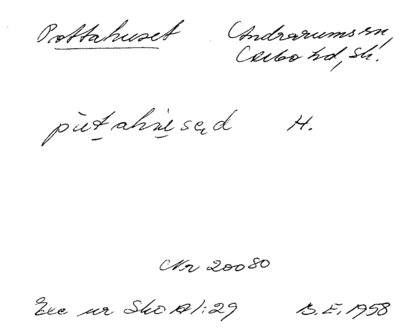 Pottahuset Andrarums sn,
Albo hd, Sk.
pɯtahɯsəd H.
Nr 20080
Exc ur Sko A1:29 B.E. 1958